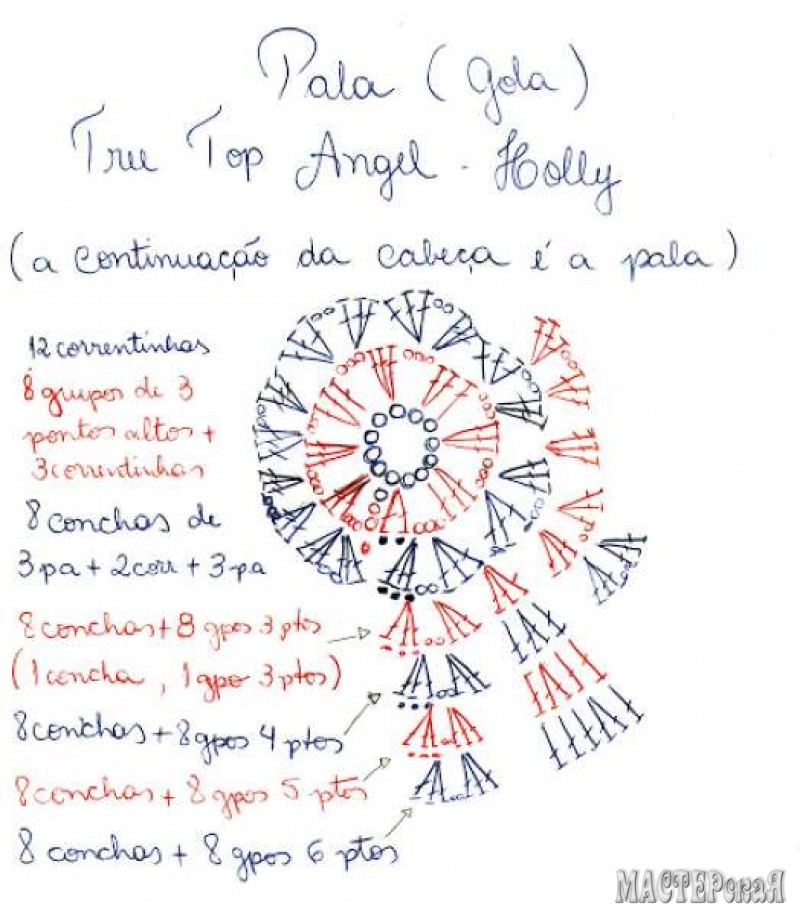 Pala (Gola)
Tree Top Angel - Holly
(a continuação da cabeça é a pala)
12 correntinhas
8 grupos de 3
pontos altos +
3 correntinhas
8 conchas de
3 pa + 2 corr + 3 pa
8 conchas + 8 gpos 3 ptos
(1 concha, 1 gpo 3 ptos)
8 conchas + 8 gpos 4 ptos
8 conchas + 8 gpos 5 ptos
8 conchas + 8 gpos 6 ptos
МАСТЕРскаЯ